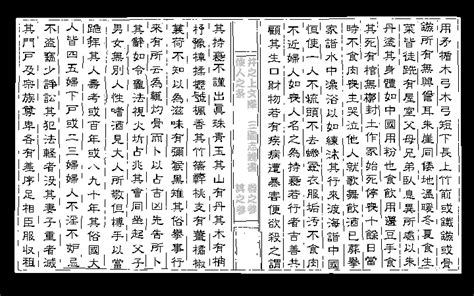 用矛楯木弓木弓短下長上竹箭或鐵鏃或骨
鏃所有無與儋耳朱崖同倭地溫暖冬夏食生
菜皆徒跣有屋室父母兄弟臥息異處以朱丹
塗其身體如中國用粉也食飲用籩豆手食
其死有棺無槨封土作冢始死停喪十餘日當
時不食肉喪主哭泣他人就歌舞飲酒已葬舉
家詣水中澡浴以如練沐其行來渡海詣中國
恒使一人不梳頭不去蟣蝨衣服垢污不食肉
不近婦人如喪人名之為持衰若行者吉善共
顧其生口財物若有疾病遭暴害便欲殺之謂
其持衰不謹出真珠青玉其山有丹其木有柟
杼豫樟楺櫪號楓香其竹篠簳桃支有薑橘椒
蘘荷不知以為滋味有獮猴黑雉其俗舉事行
來有所云為輒灼骨而卜以占吉凶先告所卜
其辭如令龜法視火坼占兆其會同坐起父子
男女無別人性嗜酒見大人所敬但搏手以當
跪拜其人壽考或百年或八九十年其俗國大
人皆四五婦下戶或二三婦婦人不淫不妒忌
不盜竊少諍訟其犯法輕者沒其妻子重者滅
其門戶及宗族尊卑各有差序足相臣服收租